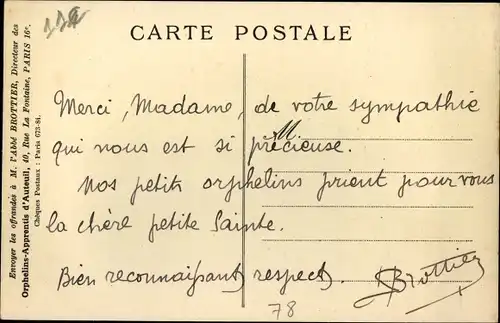 CARTE POSTALE
Envoyer les offrandes à M. l'Abbé BROTTIER, Directeur des
Orphelins-Apprentis d'Auteuil, 40, Rue La Fontaine, PARIS 16e.
Chèques Postaux : Paris 673-84.
Merci, Madame, de votre sympathie
M
qui nous est si précieuse.
Nos petits orphelins prient pour vous
la chère petite Sainte.
Bien reconnaissant respect.
Brottier
78